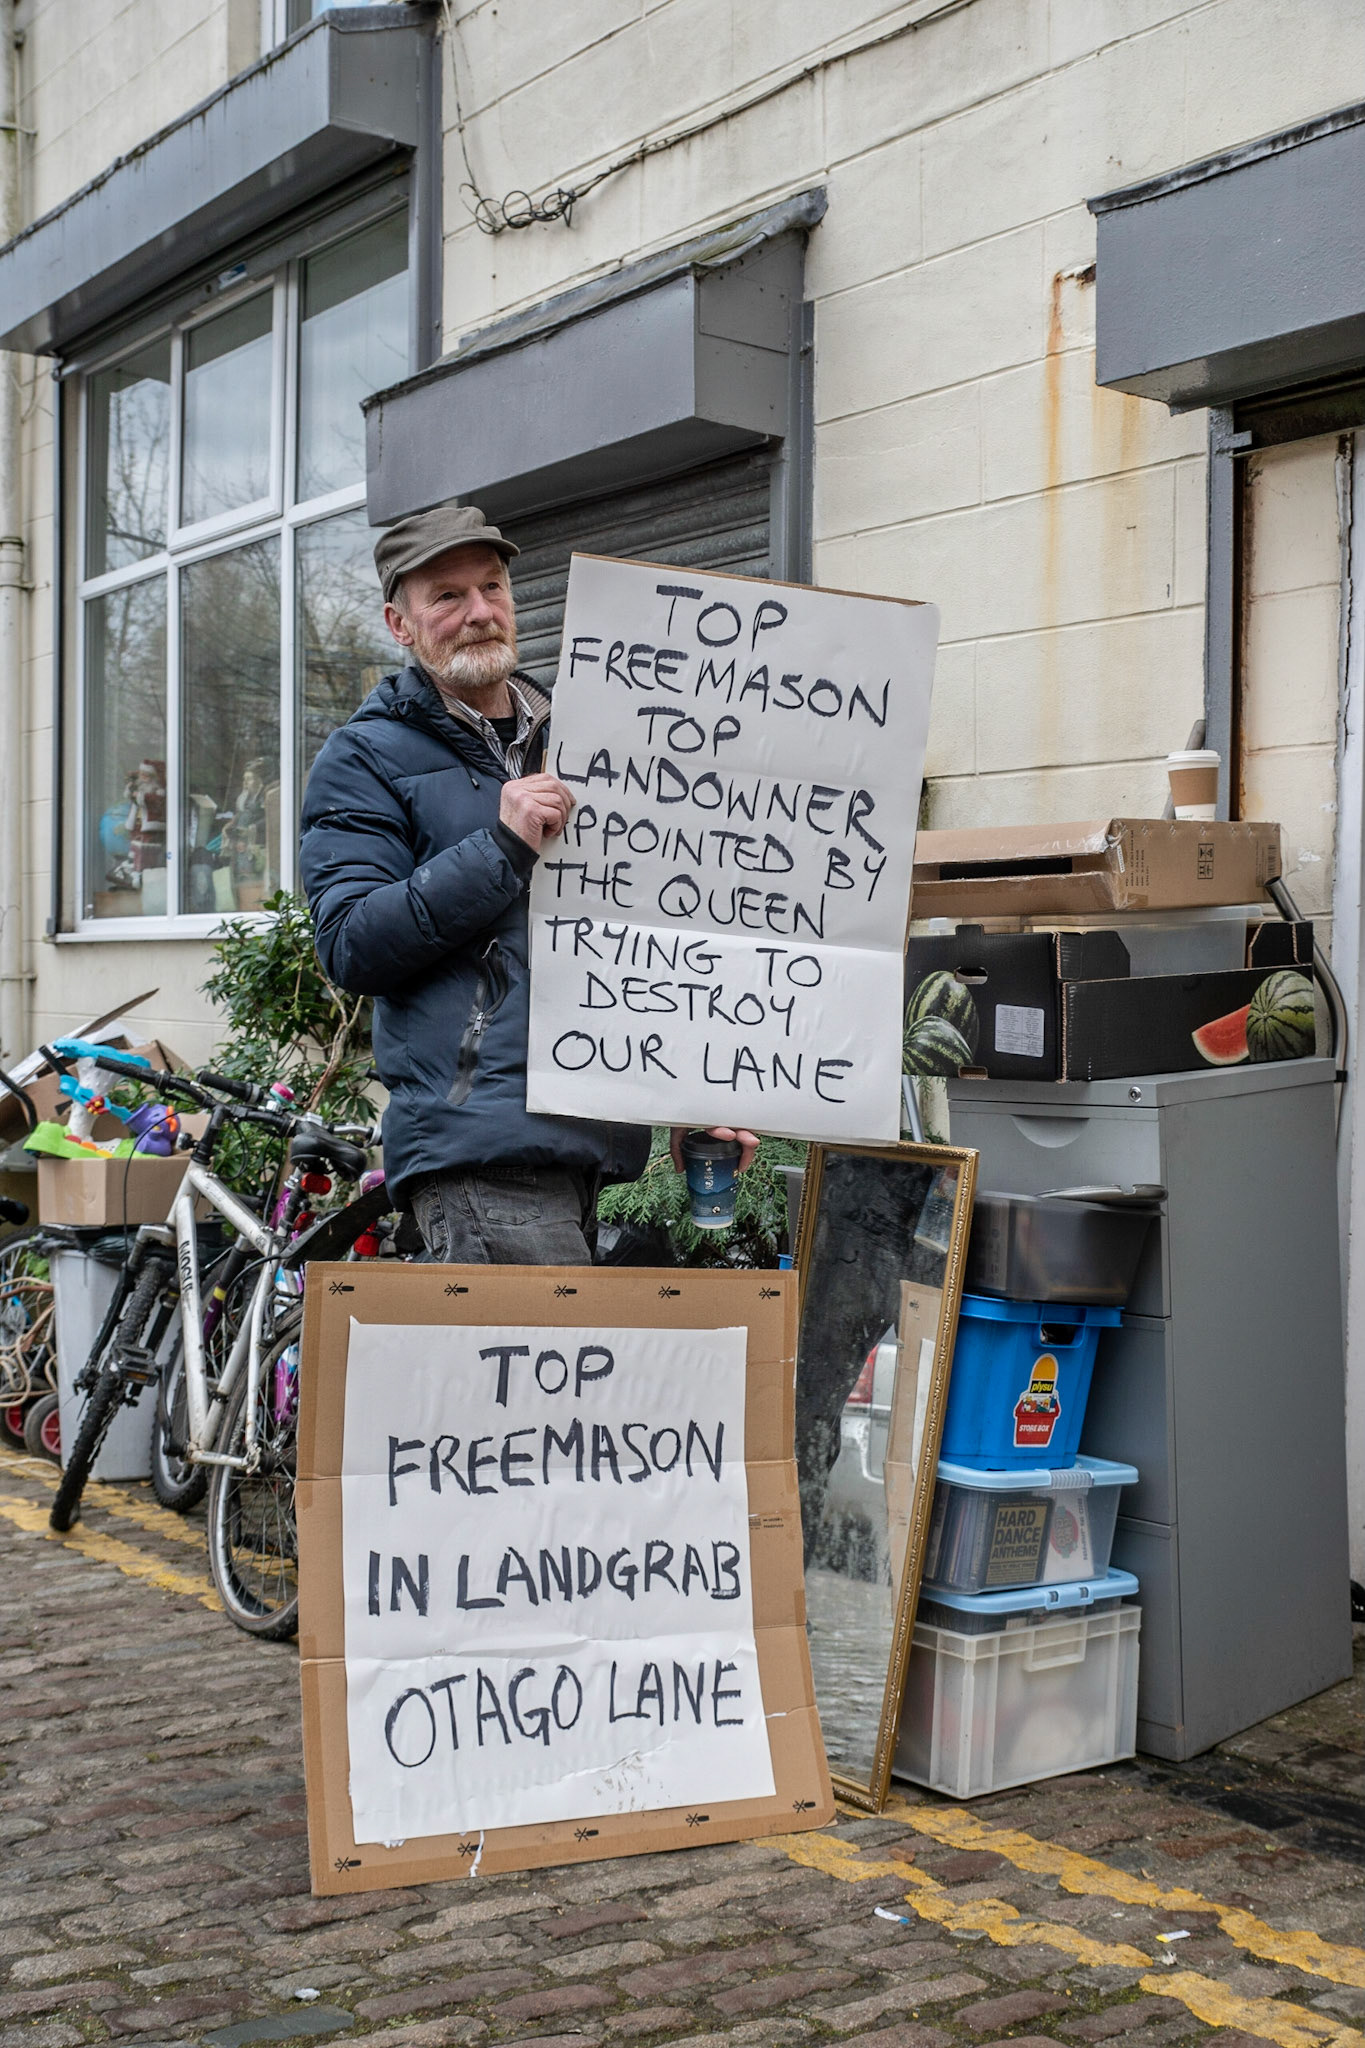 TOP
FREEMASON
TOP
LANDOWNER
APPOINTED BY
THE QUEEN
TRYING TO
DESTROY
OUR LANE
TOP
FREEMASON
IN LANDGRAB
OTAGO LANE
plysu
STORE BOX
HARD
DANCE
ANTHEMS